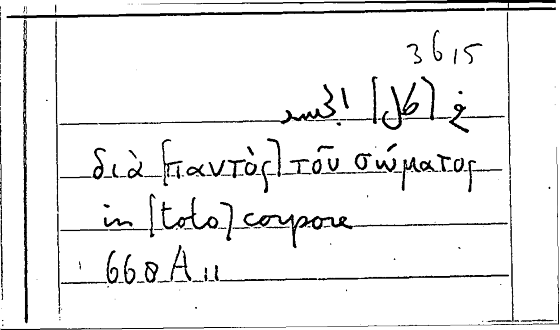 3615
في [كل]
διὰ [παντὸς] τοῦ σώματος
in [toto] corpore
668 A 11